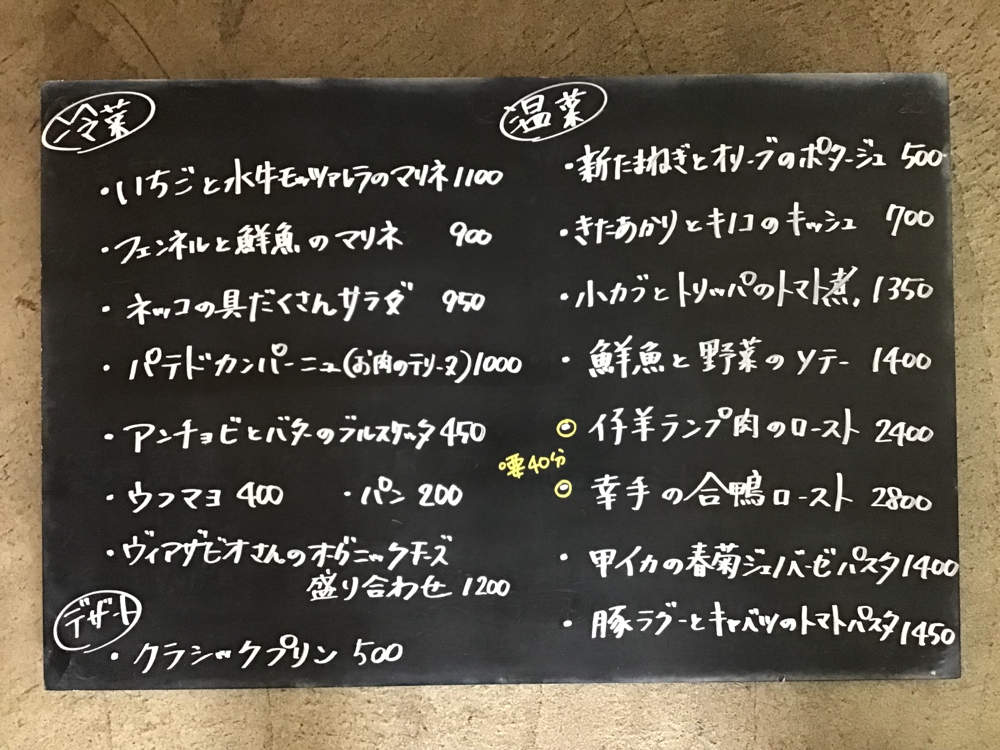 冷菜
・いちごと水牛モッツァレラのマリネ 1100
・フェンネルと鮮魚のマリネ 900
・ネッコの具だくさんサラダ 950
・パテドカンパーニュ(お肉のテリーヌ) 1000
・アンチョビとバターのブルスケッタ 450
・ウフマヨ 400 ・パン 200
・ヴィアザビオさんのオーガニックチーズ
盛り合わせ 1200
デザート
・クラシックプリン 500
温菜
・新たまねぎとオリーブのポタージュ 500
・きたあかりとキノコのキッシュ 700
・小カブとトリッパのトマト煮 1350
・鮮魚と野菜のソテー 1400
◎仔羊ランプ肉のロースト 2400
要40分
◎幸手の合鴨ロースト 2800
・甲イカの春菊ジェノバーゼパスタ 1400
・豚ラグーとキャベツのトマトパスタ 1450